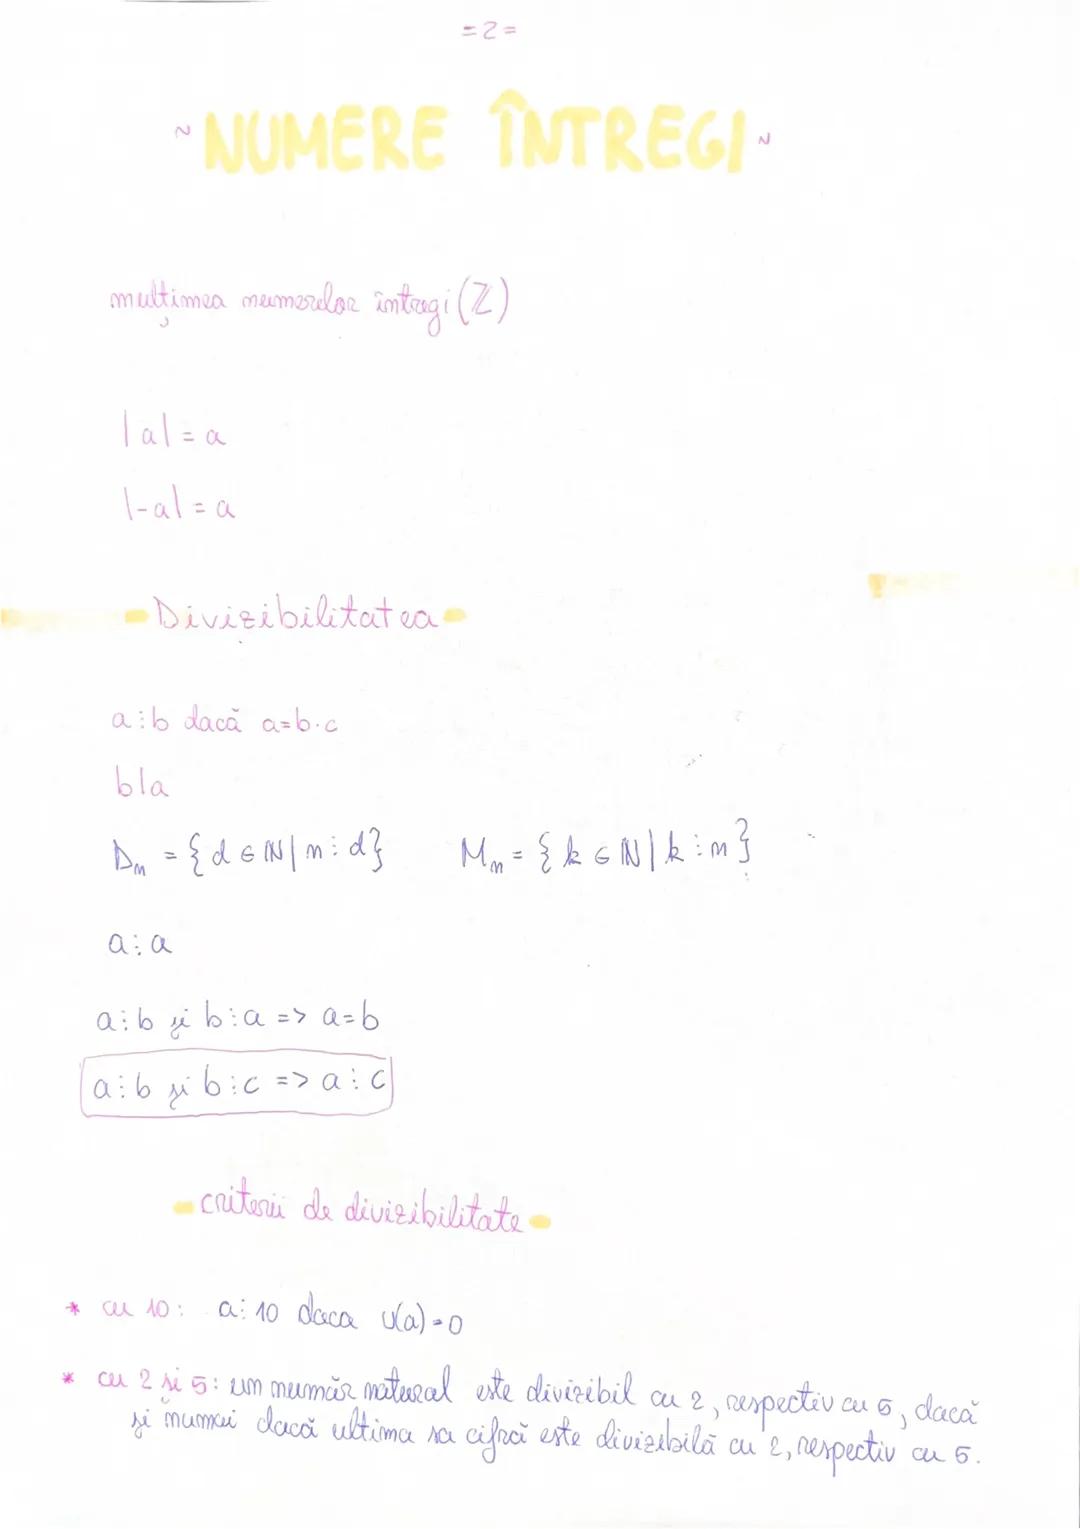 =2=
~NUMERE ÎNTREGI~
mulțimea numerelor întregi (ℤ)
|a|=a
|-a|=a
Divizibilitatea
a⋮b dacă a=b·c
b|a
Dₙ = {d∈ℕ| n⋮d} Mₙ = {k∈ℕ|k⋮n}
a⋮a
a⋮b și b⋮a => a=b
a⋮b și b⋮c => a⋮c
criterii de divizibilitate
* cu 10: a⋮10 daca u(a)=0
* cu 2 si 5: un număr natural este divizibil cu 2, respectiv cu 5, dacă
și numai dacă ultima sa cifră este divizibilă cu 2, respectiv cu 5.